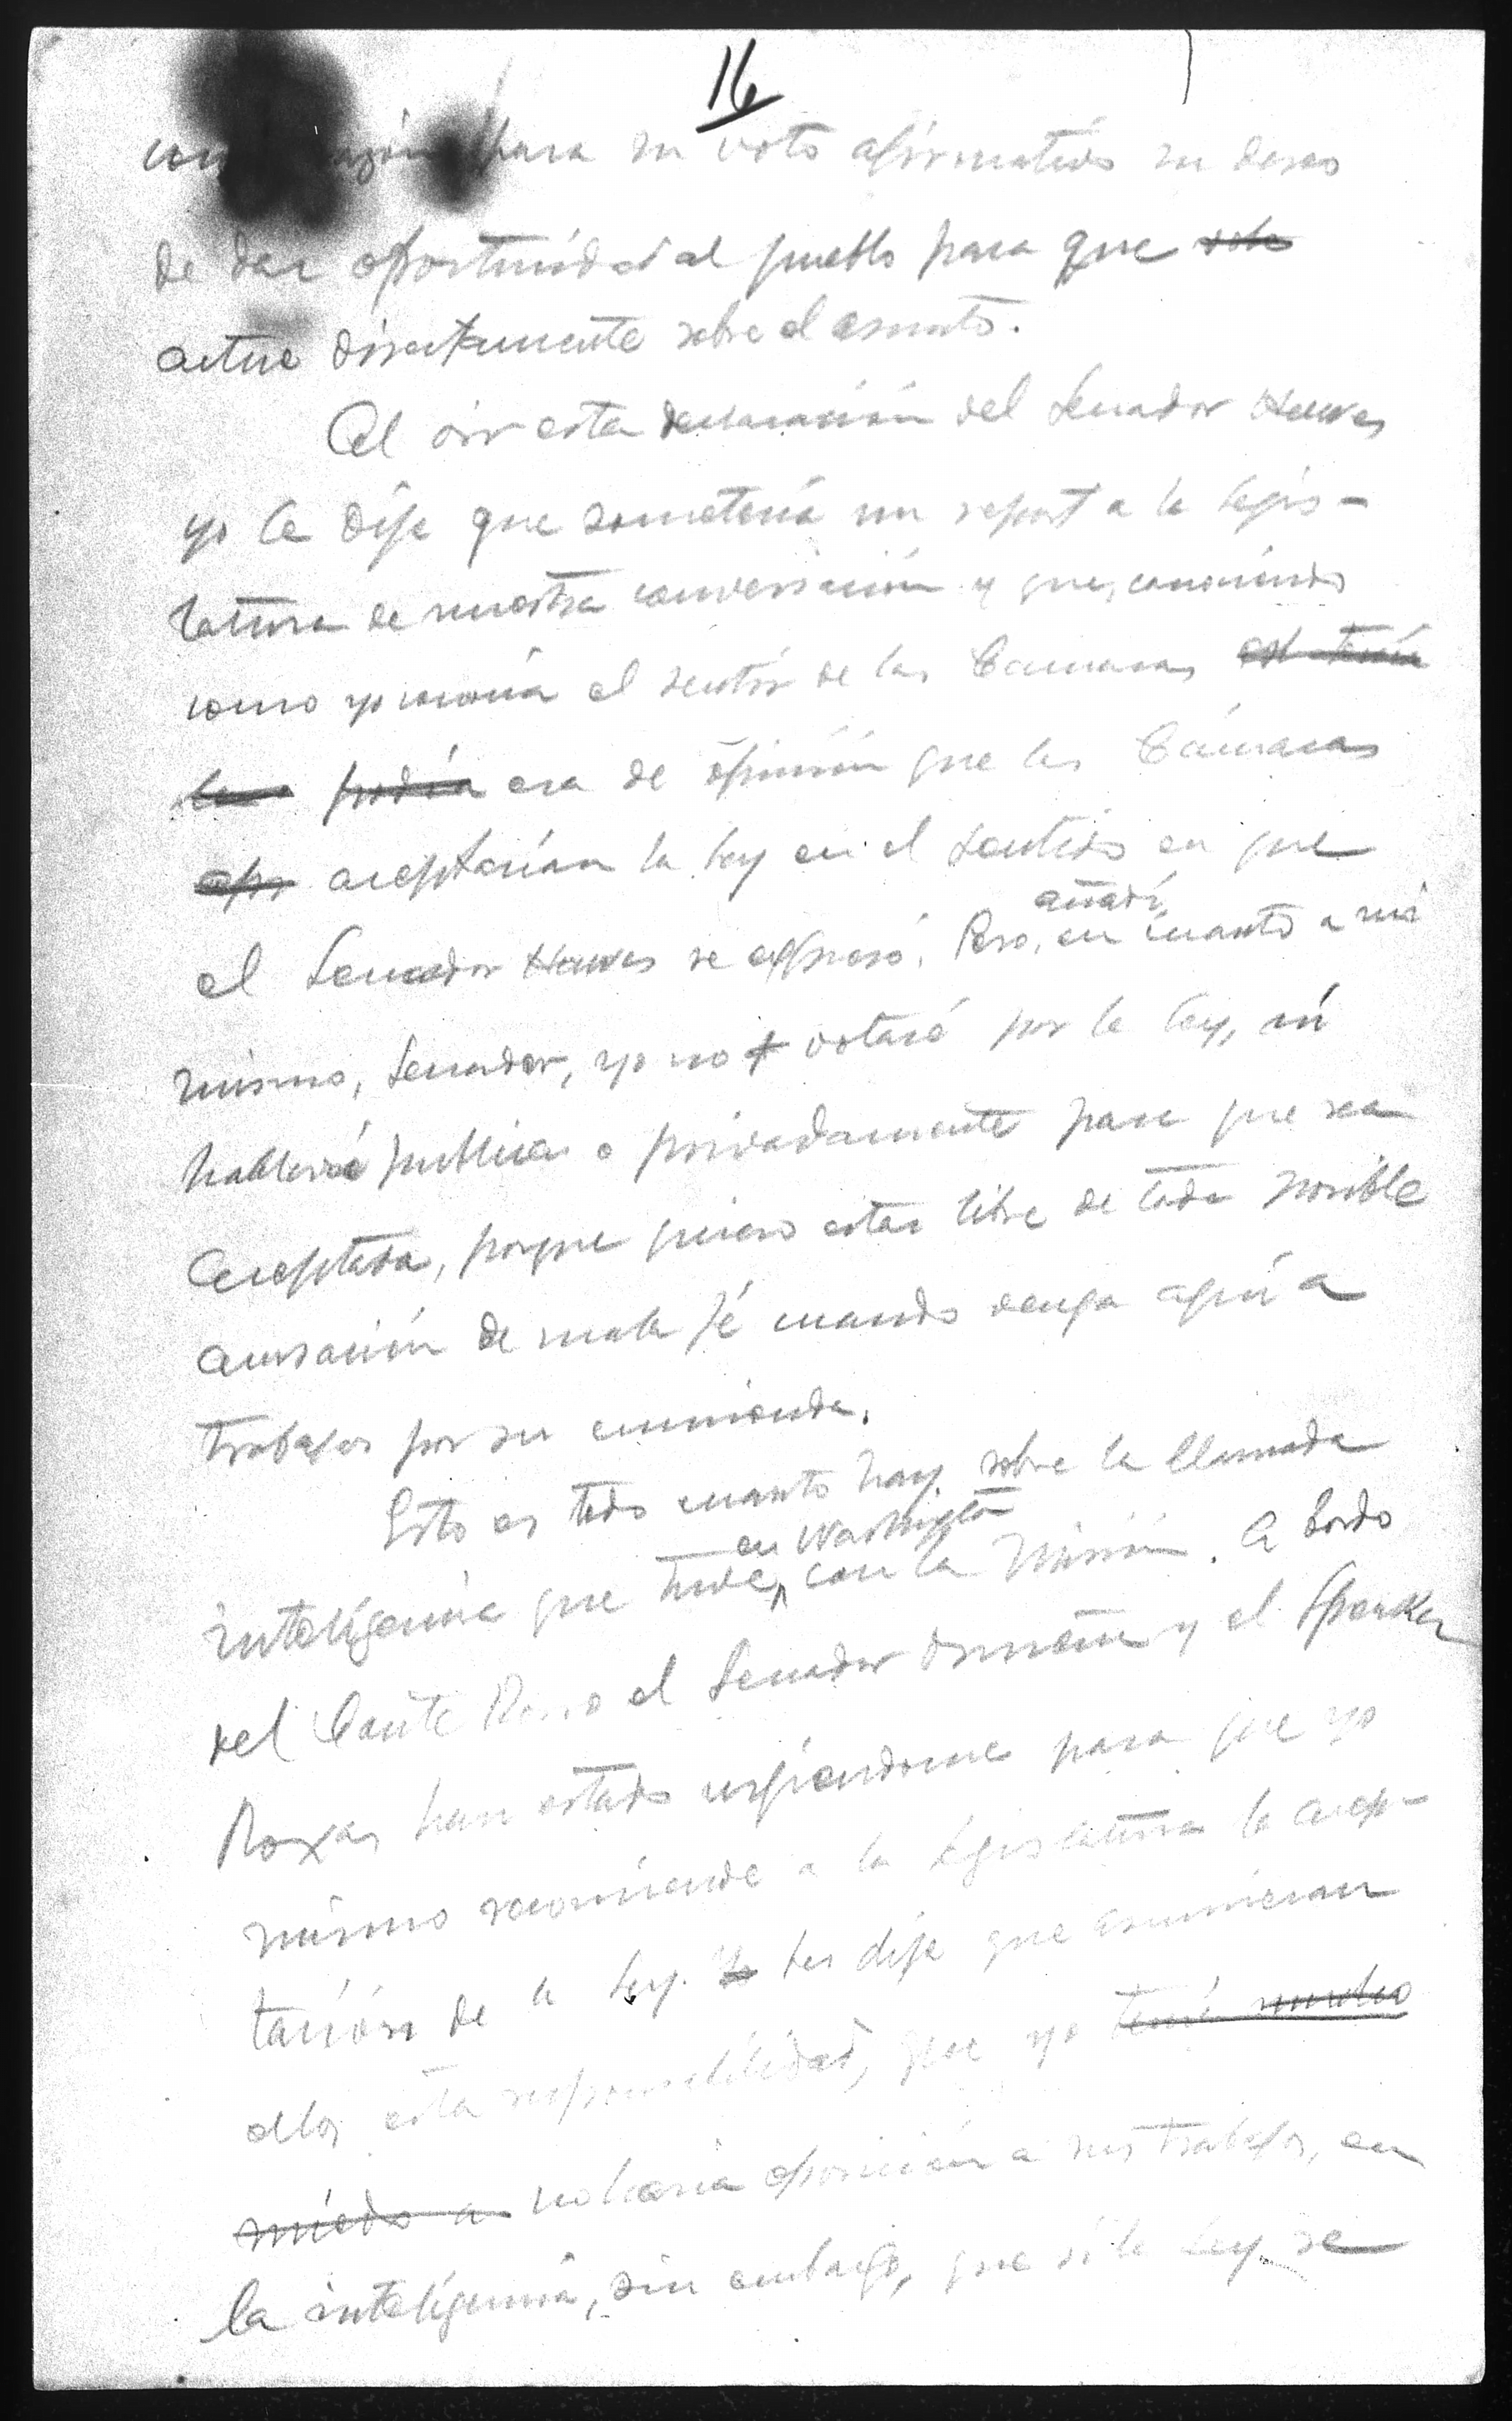 16
como razón para su voto afirmativo su deseo
de dar oportunidad al pueblo para que vote
actue directamente sobre el asunto.
Al oir esta declaración del Senador Hawes
yo le dije que sometería un report a la Legis-
latura de nuestra conversación y que, conociendo
como yo conocía el sentir de las Camaras
podia era de opinión que las Cámaras
aceptarían la ley en el sentido en que
añadí,
el Senador Hawes se expresó. Pero, en cuanto a mi
mismo, Senador, yo no votaré por la ley, ni
hablaré publica o privadamente para que sea
aceptada, porque quiero estar libre de toda posible
acusación de mala fé cuando venga aquí a
trabajar por su enmienda.
Esto es todo cuanto hay sobre la llamada
en Washington
inteligencia que tuve con la Misión. A bordo
del Conte Rosso el Senador Osmeña y el Speaker
Roxas han estado urgiendome para que yo
mismo recomiende a la Legislatura la acep-
tación de la Ley. Yo les dije que asumieran
ellos esta responsabilidad, que yo tenía mucho
miedo a no haría oposición a sus trabajos, en
la inteligencia, sin embargo, que si la ley se